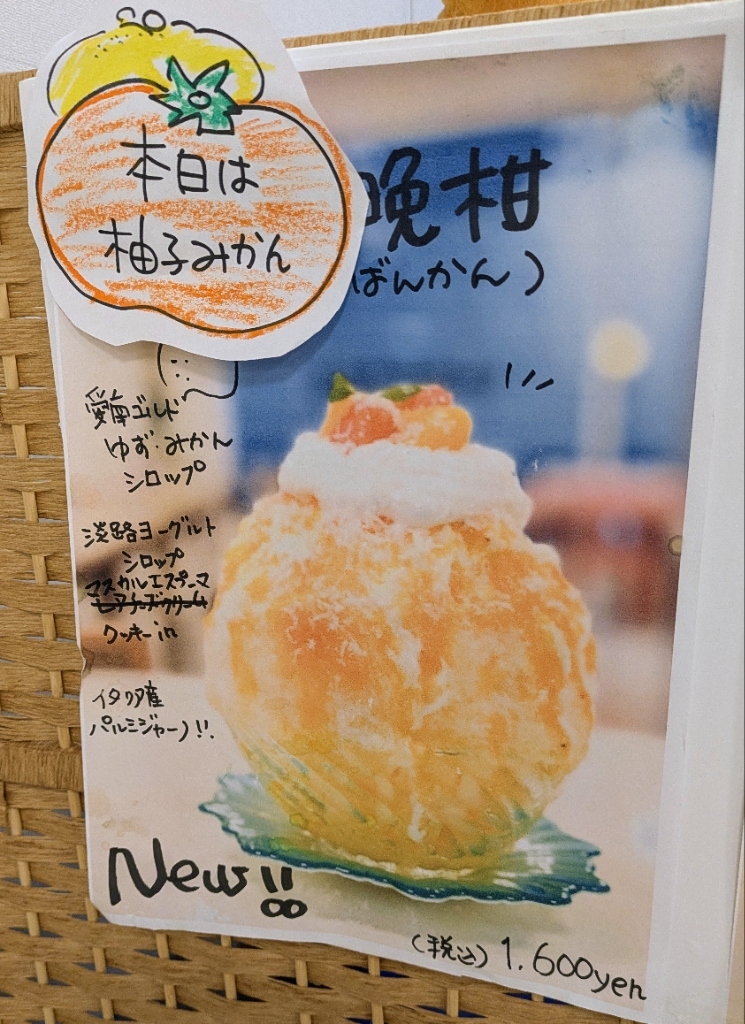 本日は
柚子みかん
晩柑
ばんかん)
愛南ゴールド
ゆず・みかん
シロップ
淡路ヨーグルト
シロップ
マスカルエスプーマ
レアチーズクリーム
クッキーin
イタリア産
パルミジャーノ!!
New!!
(税込) 1.600yen